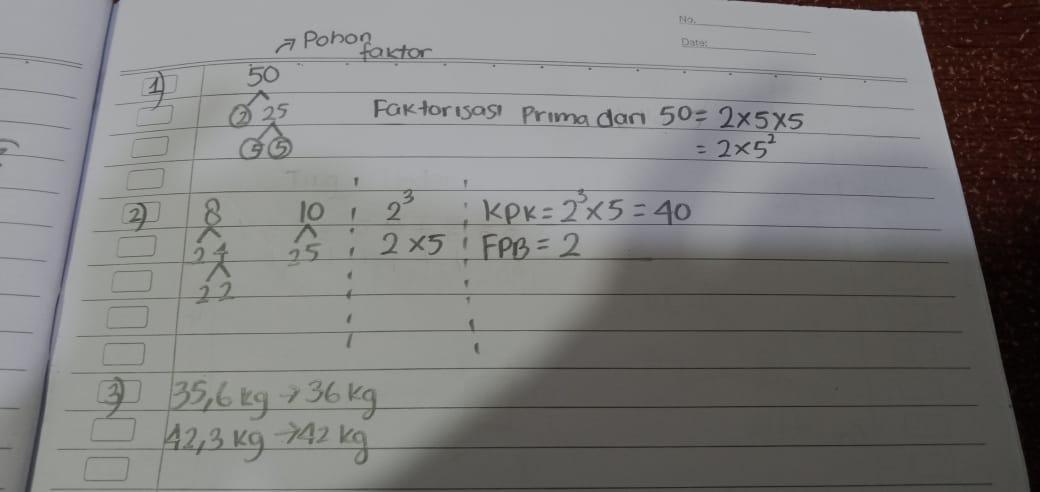 No.
Date:
→ Pohon
faktor
1) 50
2 25
5 5
Faktorisasi Prima dari 50 = 2×5×5
= 2×5²
2) 8 10 2³ KPK = 2³×5 = 40
2 4 2 5 2 × 5 FPB = 2
2 2
3) 35,6 kg → 36 kg
42,3 kg → 42 kg